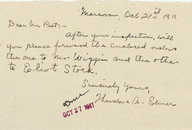 Marsovan, Oct 21st 1911
Dear Mr. Peet:-
After your inspection, will
you please forward the enclosed orders
the one to Mr Wiggin and the other
to Elliot Stock.
Sincerely Yours,
Theodore A. Elmer
Done
OCT 27 1911